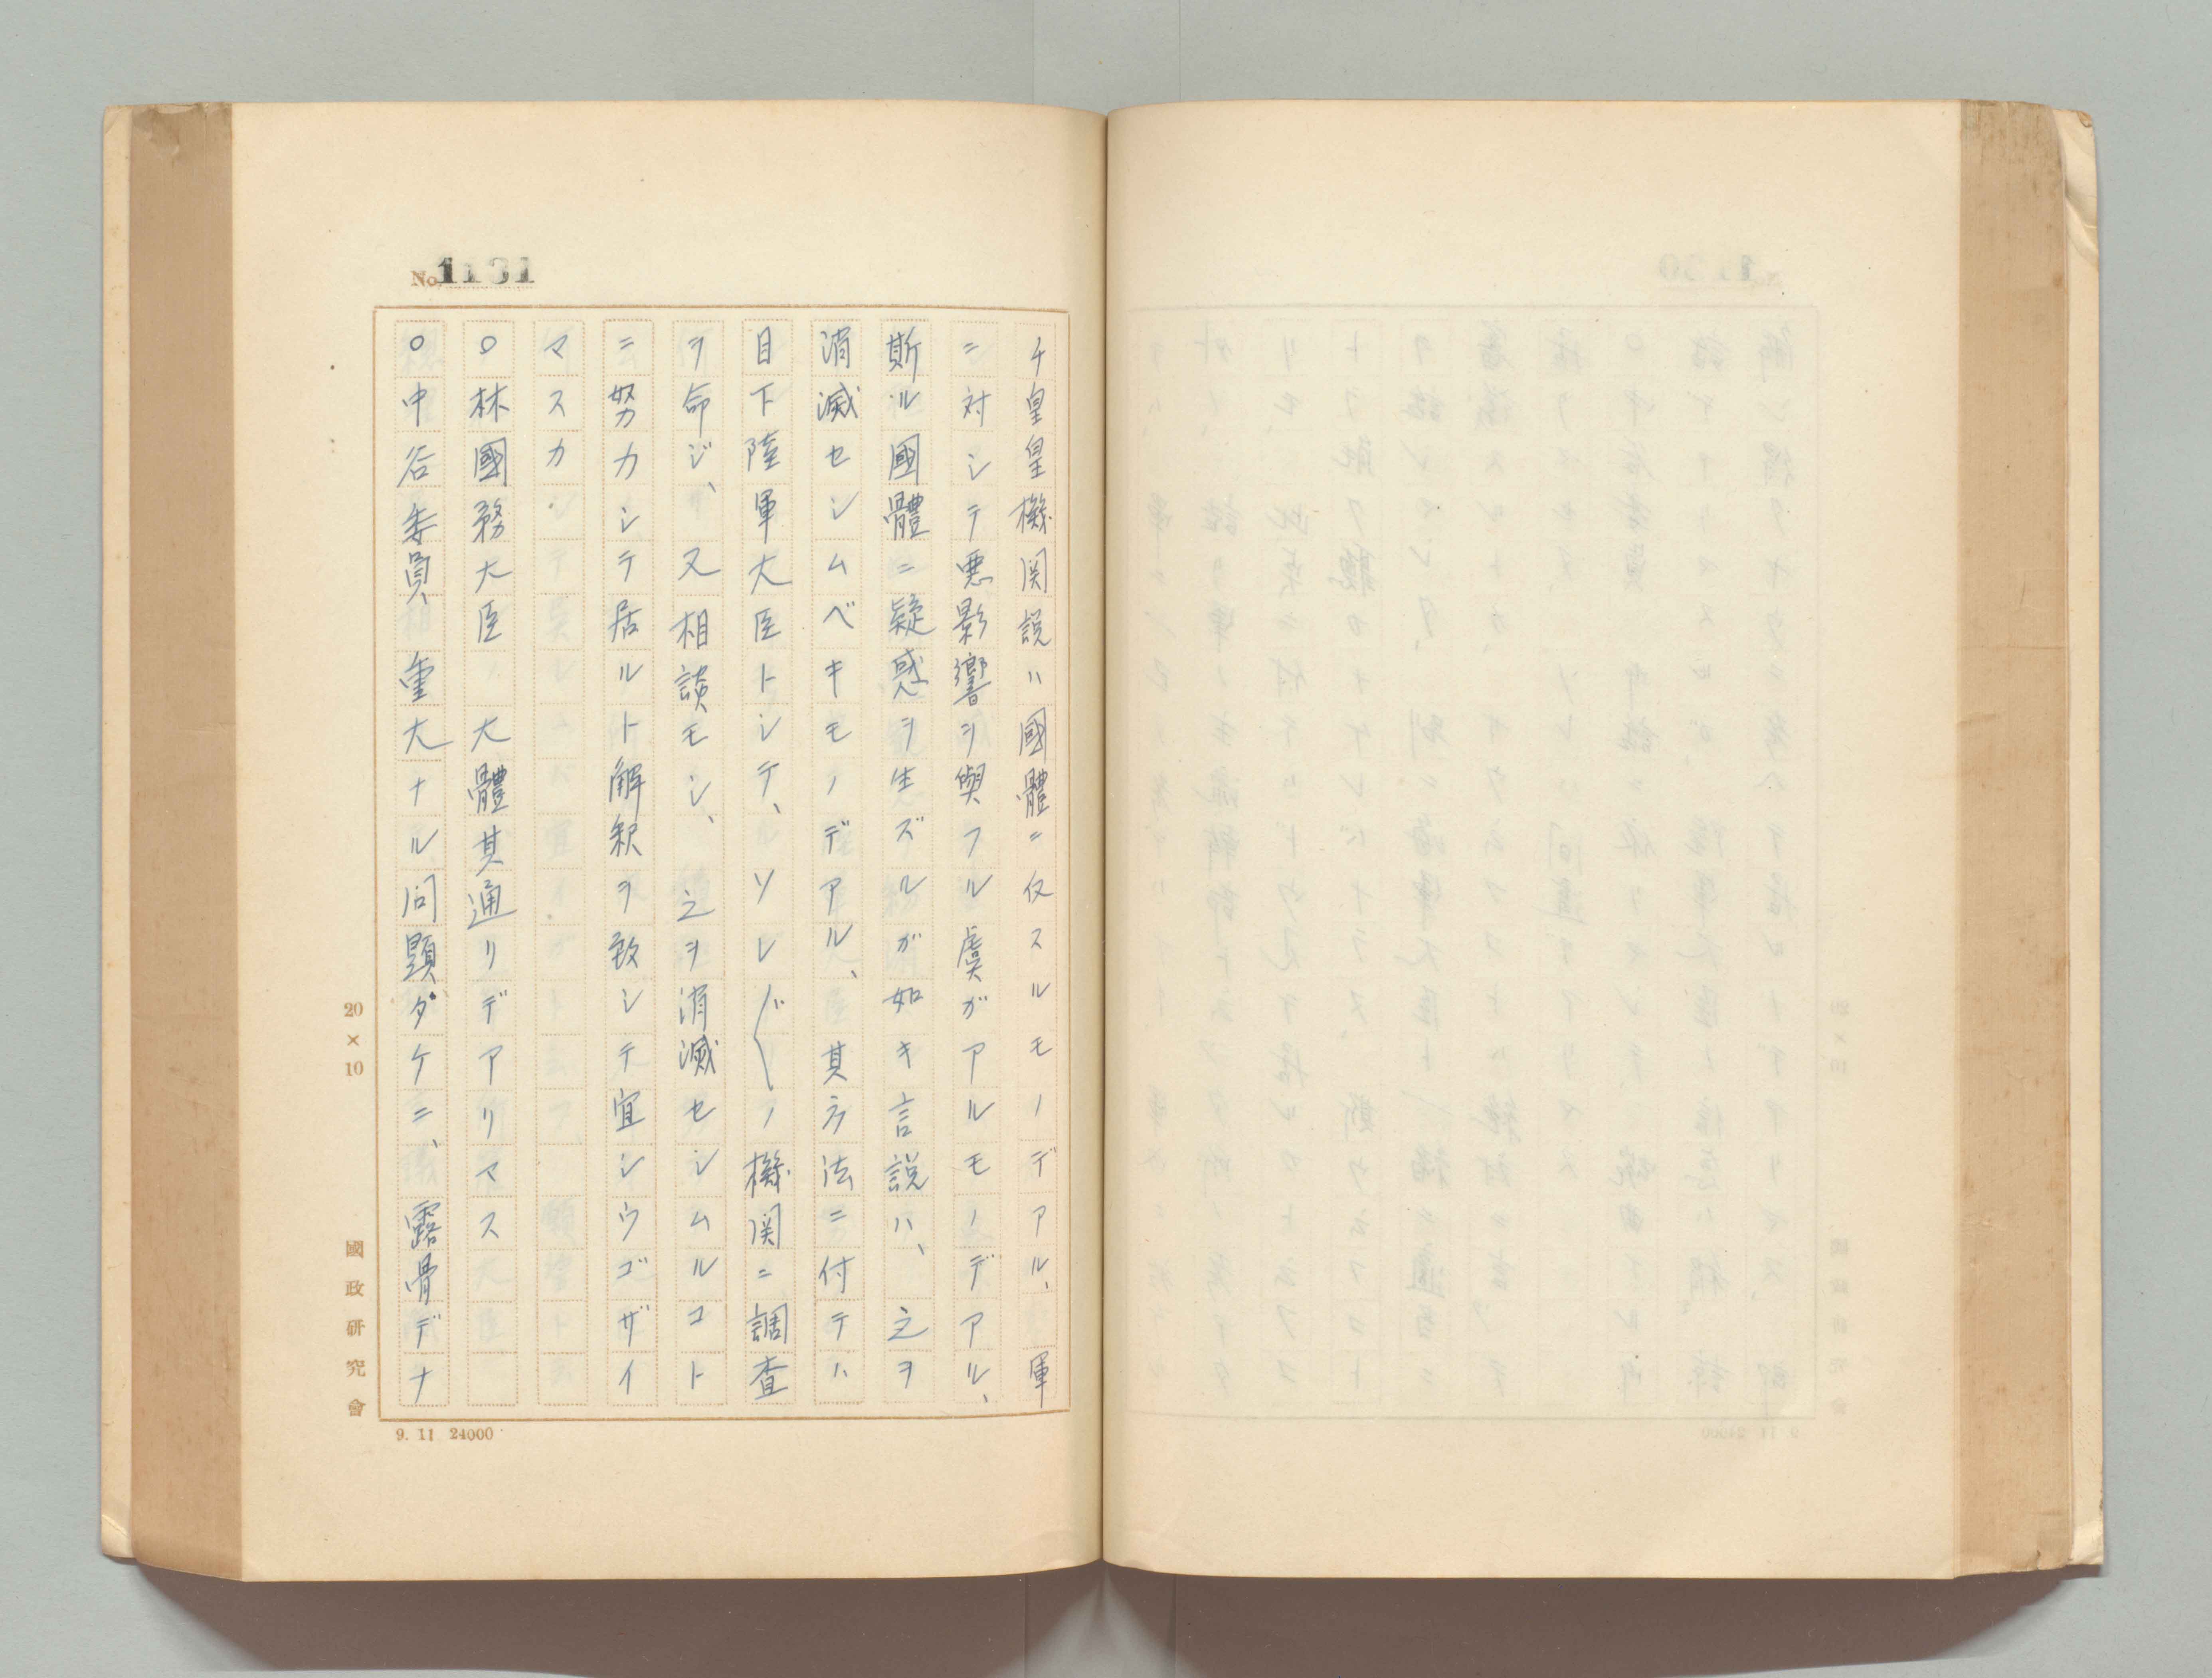 No. 1131
チ皇皇機関説ハ國體ニ仅スルモノデアル、軍
ニ対シテ悪影響ヲ與フル虞ガアルモノデアル、
斯ル國體ニ疑惑ヲ生ズルガ如キ言説ハ、之ヲ
消滅セシムベキモノデアル、其方法ニ付テハ
目下陸軍大臣トシテ、ソレ〲ノ機関ニ調査
ヲ命ジ、又相談モシ、之ヲ消滅セシムルコト
ニ努力シテ居ルト解釈ヲ致シテ宜シウゴザイ
マスカ
○林國務大臣 大體其通リデアリマス
○中谷委員 重大ナル問題ダケニ、露骨デナ
20×10
國政研究會
9. 11 24000